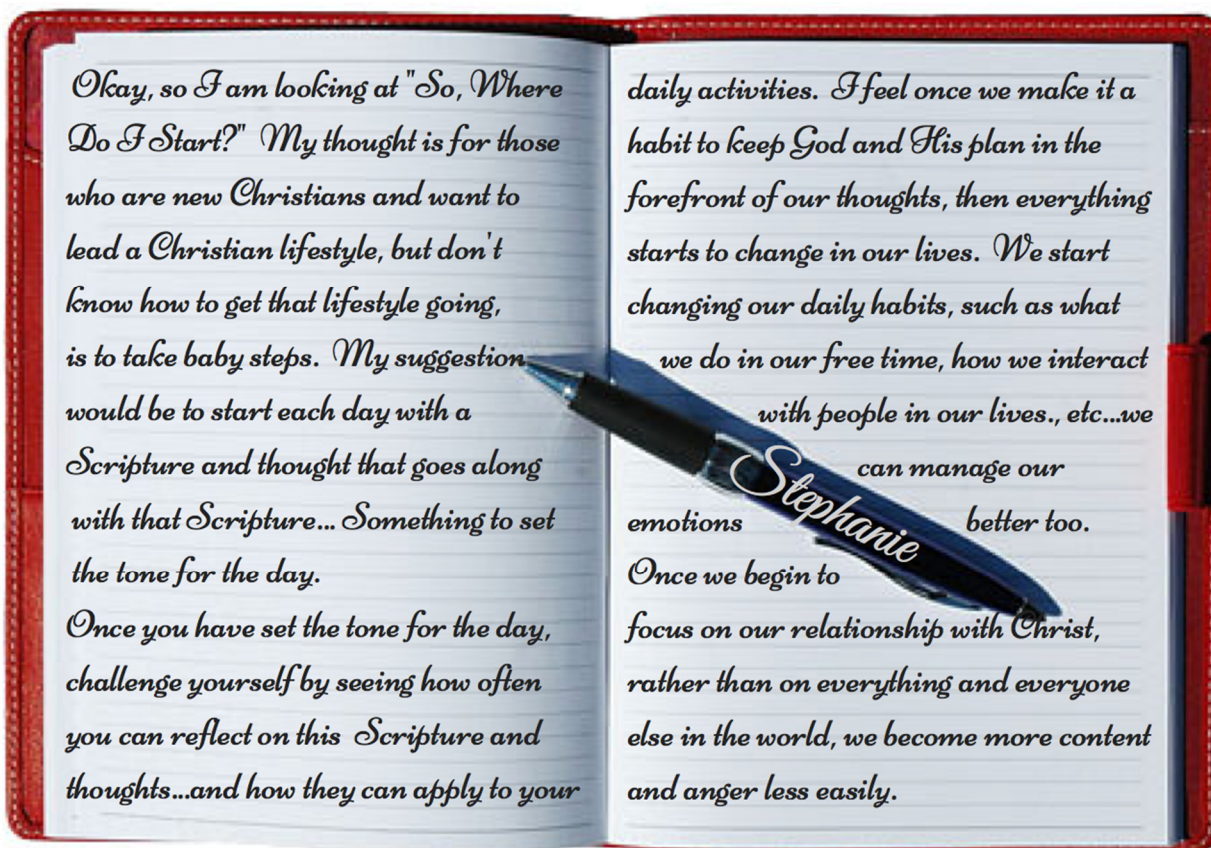 Okay, so I am looking at "So, Where
Do I Start?" My thought is for those
who are new Christians and want to
lead a Christian lifestyle, but don't
know how to get that lifestyle going,
is to take baby steps. My suggestion
would be to start each day with a
Scripture and thought that goes along
with that Scripture... Something to set
the tone for the day.
Once you have set the tone for the day,
challenge yourself by seeing how often
you can reflect on this Scripture and
thoughts...and how they can apply to your
daily activities. I feel once we make it a
habit to keep God and His plan in the
forefront of our thoughts, then everything
starts to change in our lives. We start
changing our daily habits, such as what
we do in our free time, how we interact
with people in our lives., etc...we
can manage our
emotions better too.
Once we begin to
focus on our relationship with Christ,
rather than on everything and everyone
else in the world, we become more content
and anger less easily.
Stephanie